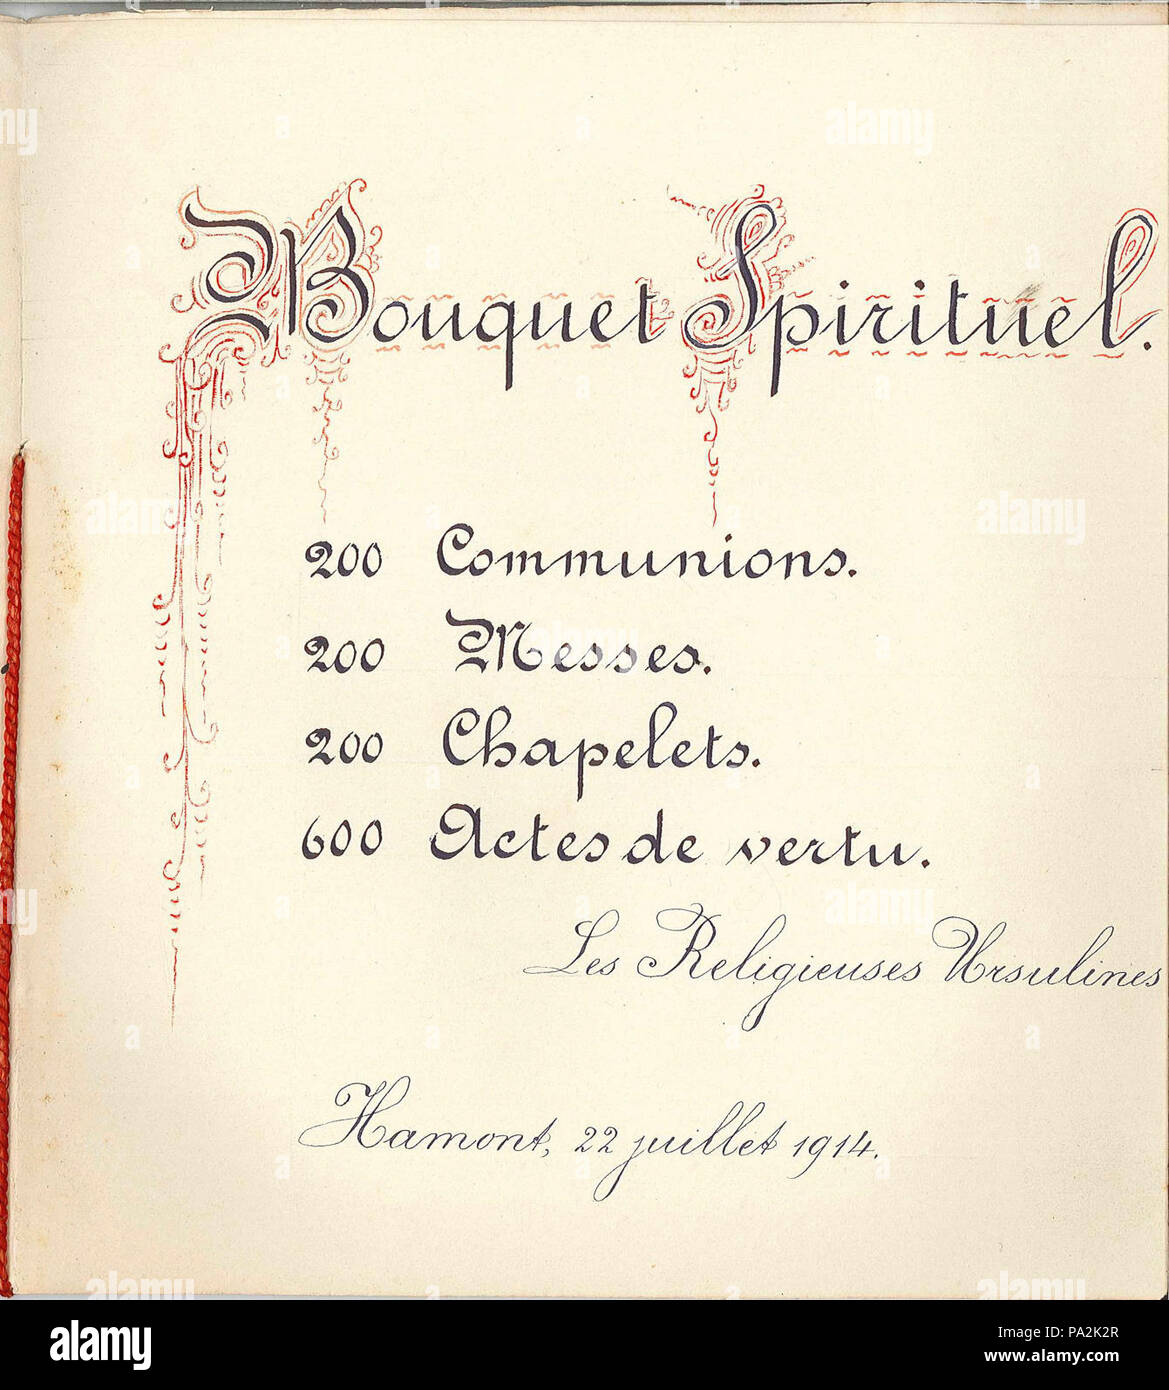 Bouquet Spirituel.
200 Communions.
200 Messes.
200 Chapelets.
600 Actes de vertu.
Les Religieuses Ursulines
Hamont, 22 juillet 1914.
alamy
Image ID: PA2K2R
www.alamy.com